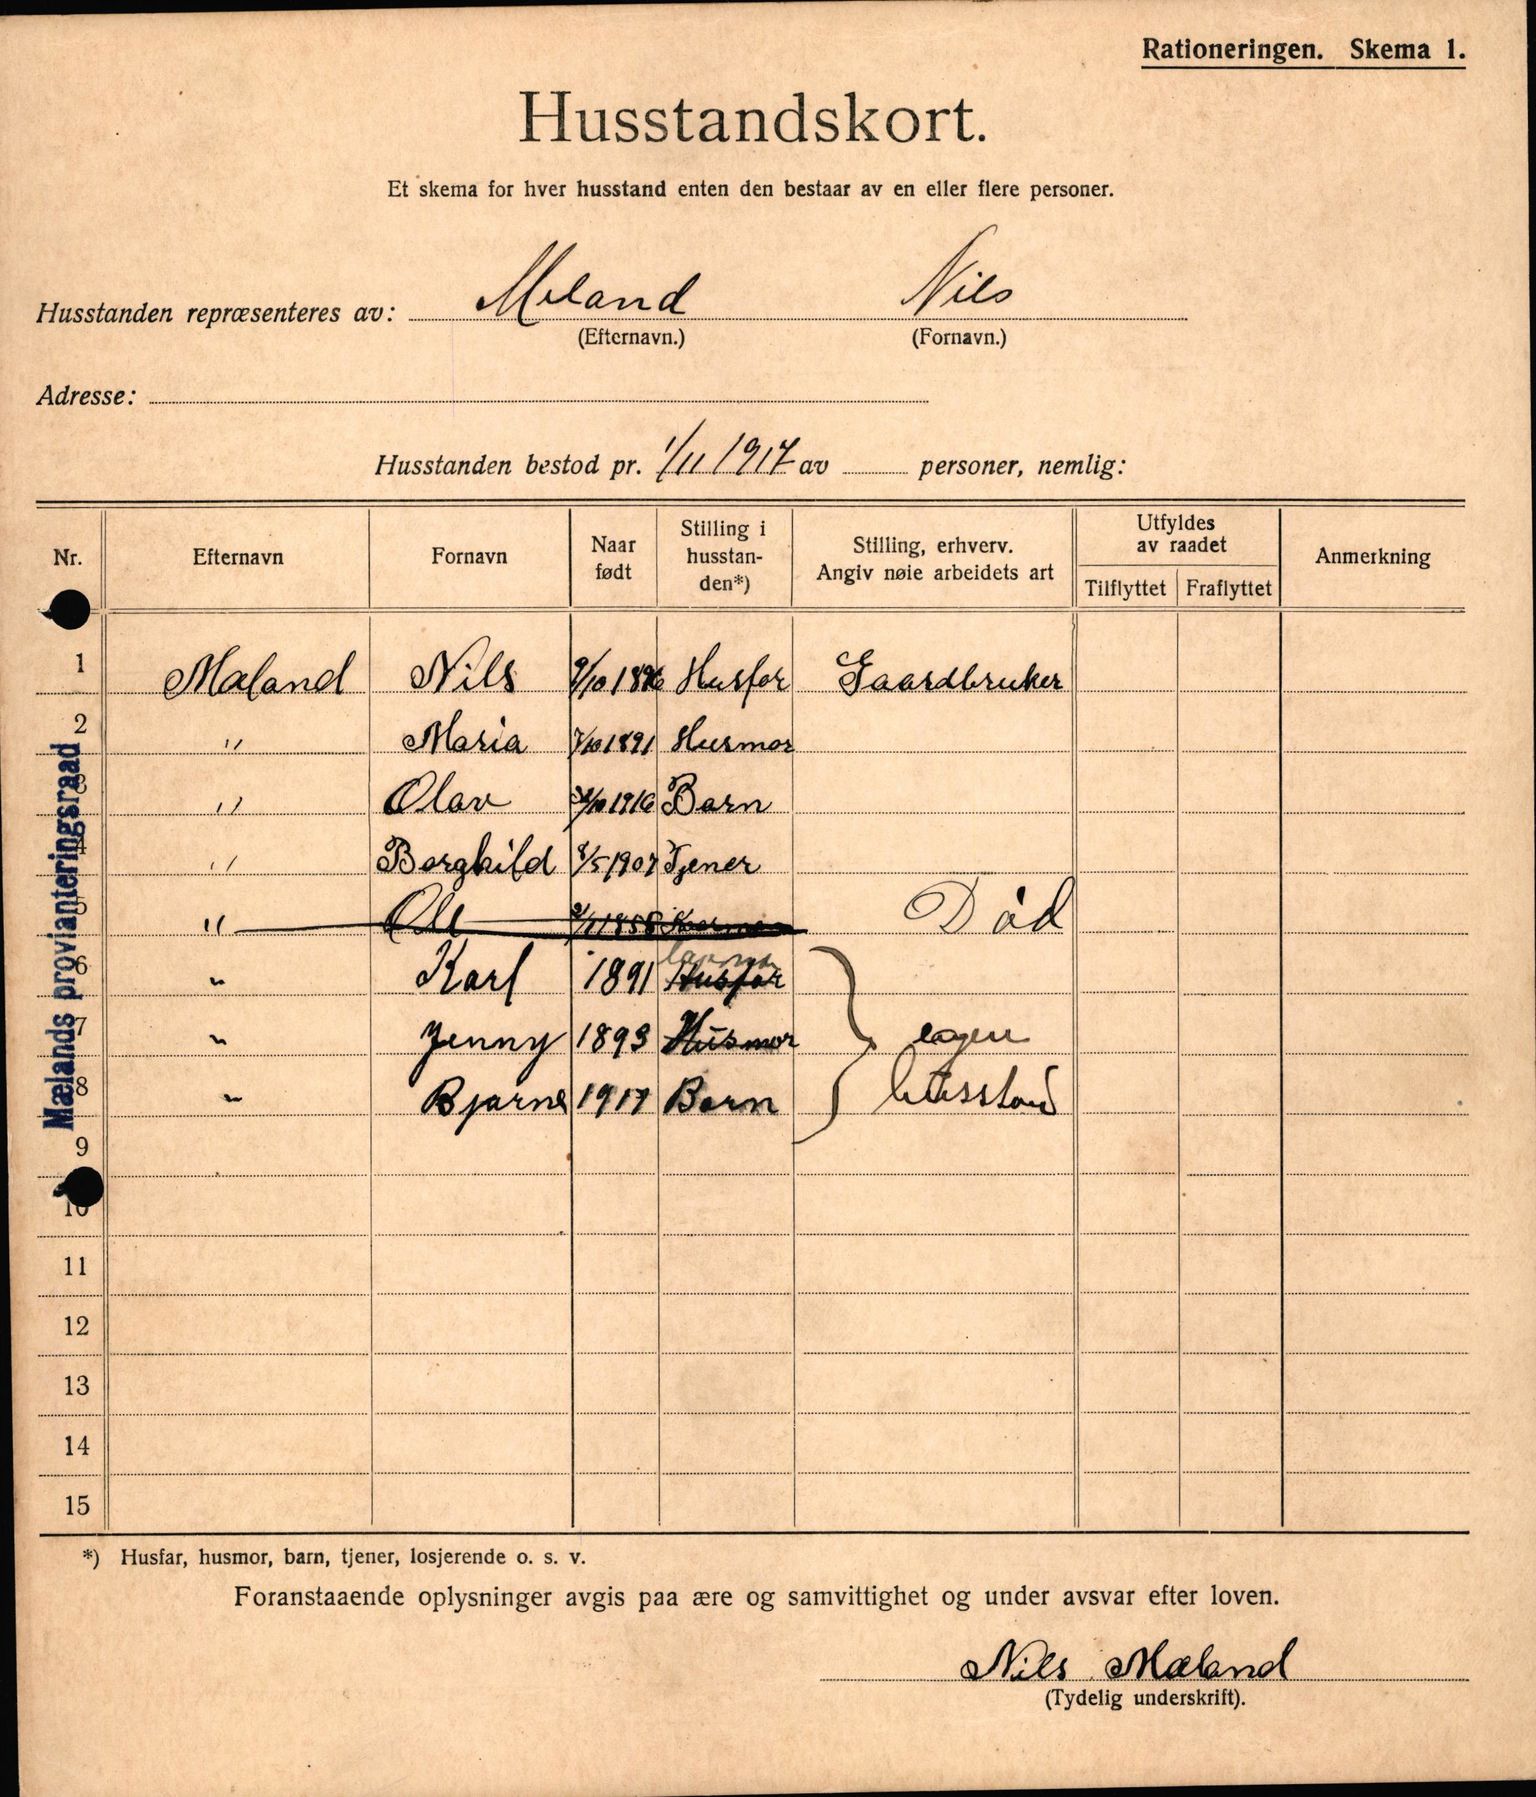 Rationeringen. Skema 1.
Husstandskort.
Et skema for hver husstand enten den bestaar av en eller flere personer.
Husstanden repræsenteres av: Mæland Nils
(Efternavn.) (Fornavn.)
Adresse:
Husstanden bestod pr. 1/11 1917 av personer, nemlig:
Nr. Efternavn Fornavn Naar født Stilling i husstan-den*) Stilling, erhverv. Angiv nøie arbeidets art Utfyldes av raadet Tilflyttet Fraflyttet Anmerkning
1 Mæland Nils Husfar Gaardbruker
2 " Maria 1891 Husmor
3 " Olav 1916 Barn
4 " Borghild 8/5 1907 Tjener
5 " Ole 1858 Død
6 " Karl 1891 Husfar
7 " Jenny 1893 Husmor egen
8 " Bjarne 1917 Barn husstand
9
10
11
12
13
14
15
Mælands provianteringsraad
*) Husfar, husmor, barn, tjener, losjerende o. s. v.
Foranstaaende oplysninger avgis paa ære og samvittighet og under avsvar efter loven.
Nils Mæland
(Tydelig underskrift).